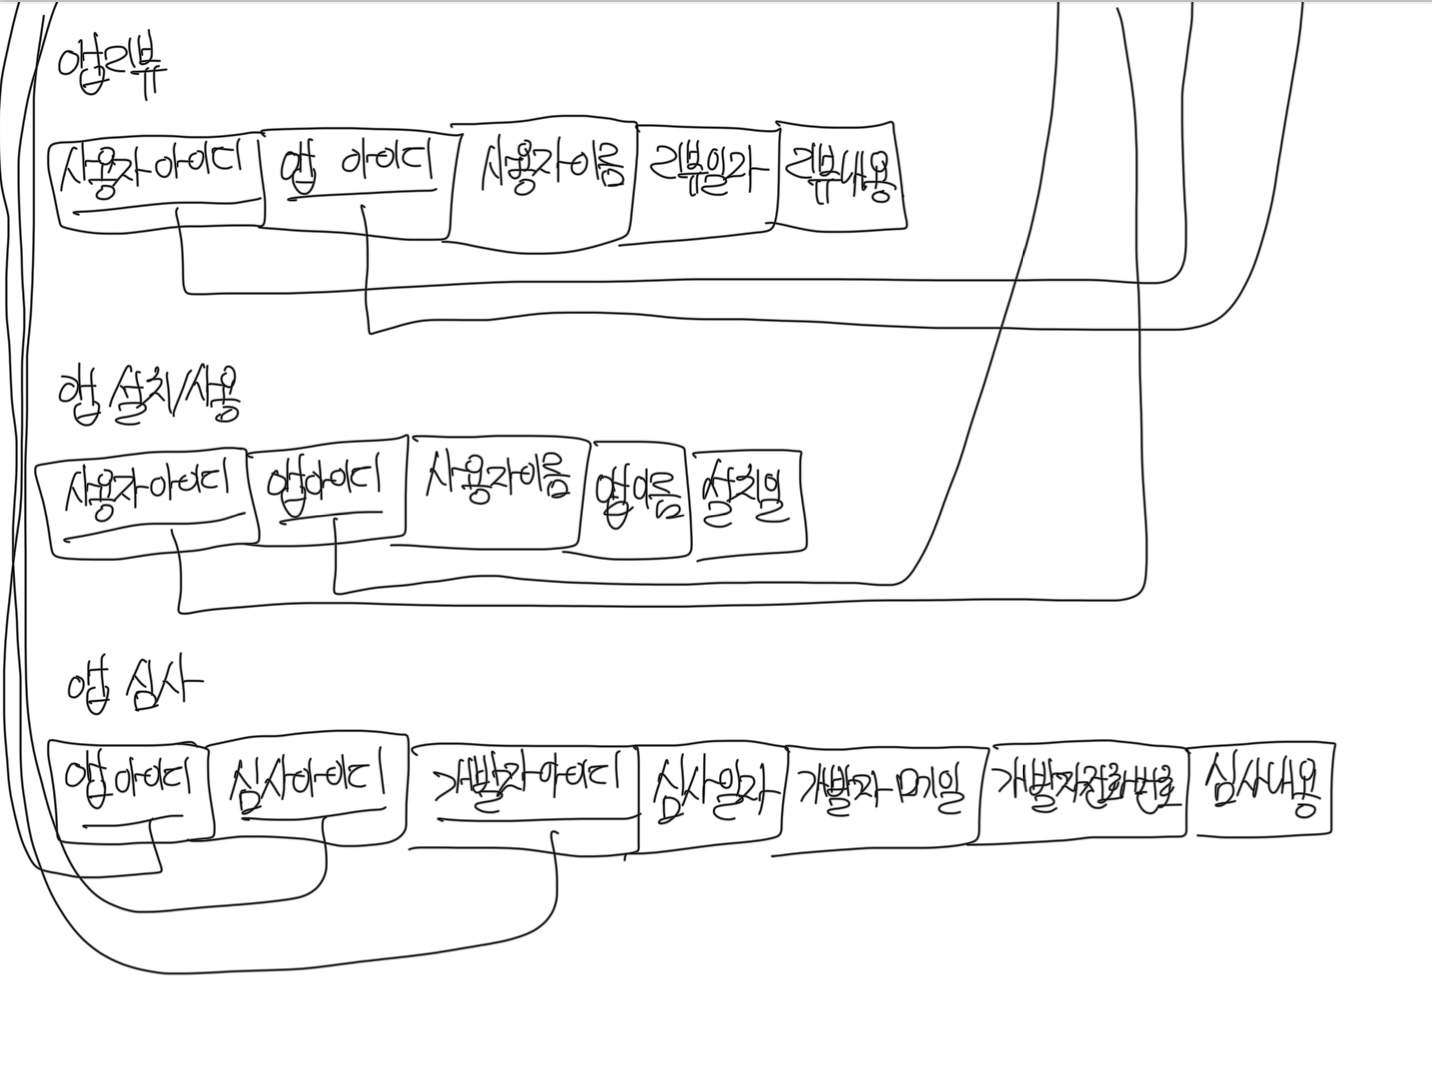 앱리뷰
사용자 아이디 앱 아이디 사용자이름 리뷰일자 리뷰내용
앱 설치/사용
사용자아이디 앱아이디 사용자이름 앱이름 설치일
앱 심사
앱아이디 심사아이디 개발자아이디 심사일자 개발자메일 개발자전화번호 심사내용